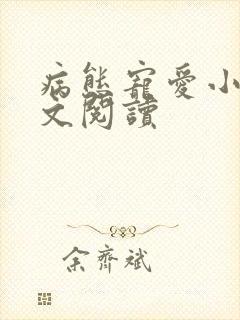 病態寵愛小
文閱讀
余齊斌